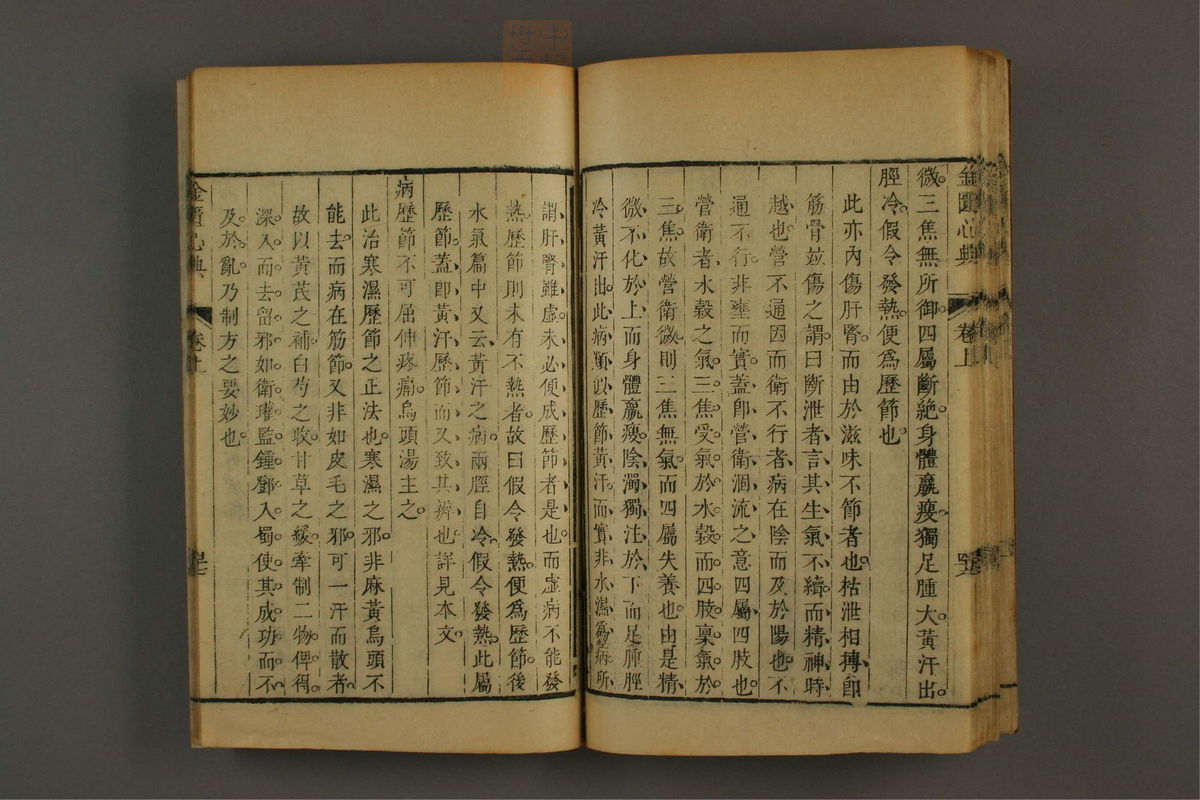 金匱心典
卷上
微三焦無所御四屬斷絶身體羸瘦獨足腫大黃汗出
脛冷假令發熱便爲歷節也
此亦內傷肝腎而由於滋味不節者也枯泄相搏卽
筋骨竝傷之謂曰斷泄者言其生氣不續而精神時
越也營不通因而衛不行者病在陰而及於陽也不
通不行非壅而實蓋卽營衛涸流之意四屬四肢也
營衛者水穀之氣三焦受氣於水穀而四肢稟氣於
三焦故營衛微則三焦無氣而四屬失養也由是精
微不化於上而身體羸瘦陰濁獨注於下而足腫脛
冷黃汗出此病類似歷節黃汗而實非水濕爲病所
謂肝腎雖虛未必便成歷節者是也而虛病不能發
熱歷節則未有不熱者故曰假令發熱便爲歷節後
水氣篇中又云黃汗之病兩脛自冷假令發熱此屬
歷節蓋卽黃汗歷節而又致其辨也詳見本文
病歷節不可屈伸疼痛烏頭湯主之
此治寒濕歷節之正法也寒濕之邪非麻黃烏頭不
能去而病在筋節又非如皮毛之邪可一汗而散者
故以黃芪之補白芍之收甘草之緩牽制二物俾得
深入而去留邪如衛瓘監鍾鄧入蜀使其成功而不
及於亂乃制方之要妙也
金匱心典
卷上